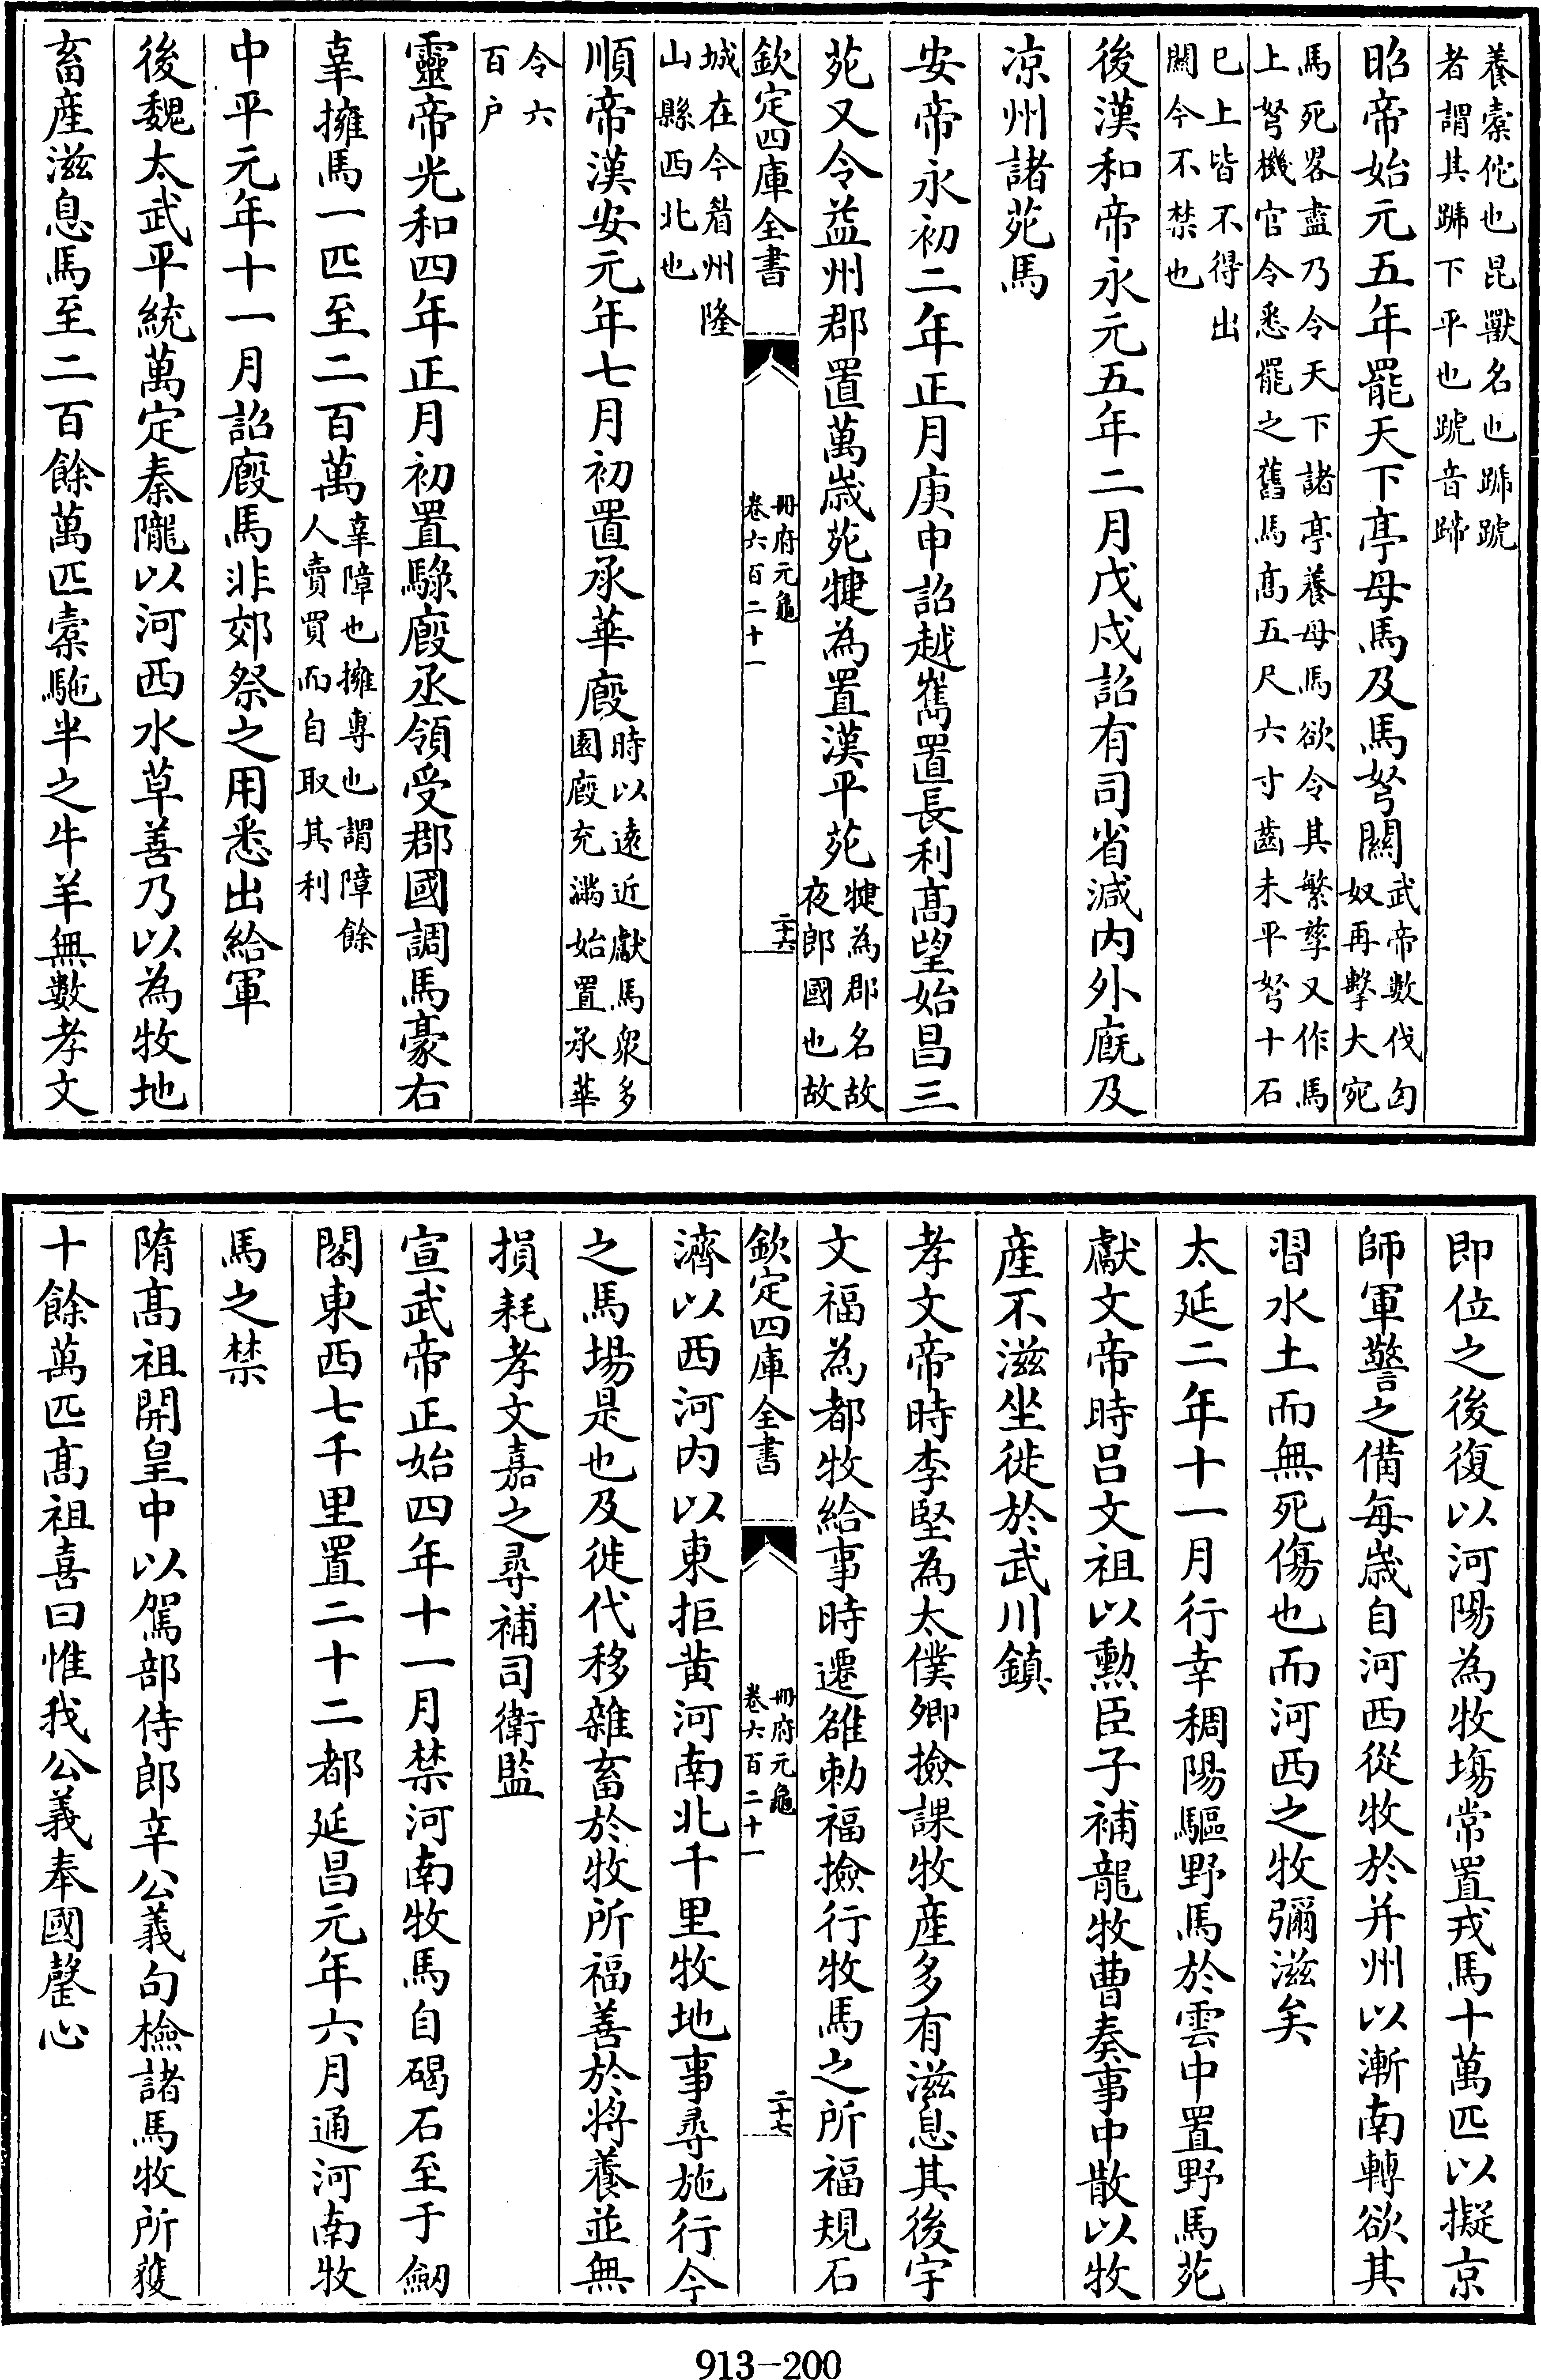 養橐佗也昆獸名也蹏䠠
者謂其蹏下平也䠠音蹄
昭帝始元五年罷天下亭母馬及馬弩關武帝數伐匈
奴再擊大宛
馬死畧盡乃令天下諸亭養母馬欲令其繁孳又作馬
上弩機官令悉罷之舊馬髙五尺六寸齒未平弩十石
已上皆不得出
關今不禁也
後漢和帝永元五年二月戊戌詔有司省減内外廐及
凉州諸苑馬
安帝永初二年正月庚申詔越嶲置長利髙望始昌三
苑又令益州郡置萬嵗苑犍為置漢平苑犍為郡名故
夜郎國也故
欽定四庫全書
冊府元龜
卷六百二十一
二十六
城在今眉州隆
山縣西北也
順帝漢安元年七月初置承華廏時以逺近獻馬衆多
園廏充滿始置承華
令六
百户
靈帝光和四年正月初置騄廏丞領受郡國調馬豪右
辜擁馬一匹至二百萬辜障也擁專也謂障餘
人賣買而自取其利
中平元年十一月詔廏馬非郊祭之用悉出給軍
後魏太武平統萬定秦隴以河西水草善乃以為牧地
畜産滋息馬至二百餘萬匹橐駞半之牛羊無數孝文
即位之後復以河陽為牧塲常置戎馬十萬匹以擬京
師軍警之備每嵗自河西從牧於并州以漸南轉欲其
習水土而無死傷也而河西之牧彌滋矣
太延二年十一月行幸稠陽驅野馬於雲中置野馬苑
獻文帝時吕文祖以勲臣子補龍牧曹奏事中散以牧
産不滋坐徙於武川鎮
孝文帝時李堅為太僕卿撿課牧産多有滋息其後宇
文福為都牧給事時遷雒勅福撿行牧馬之所福規石
欽定四庫全書
冊府元龜
卷六百二十一
二十七
濟以西河内以東拒黄河南北千里牧地事尋施行今
之馬場是也及徙代移雜畜於牧所福善於將養並無
損耗孝文嘉之尋補司衛監
宣武帝正始四年十一月禁河南牧馬自碣石至于劒
閣東西七千里置二十二都延昌元年六月通河南牧
馬之禁
隋髙祖開皇中以駕部侍郎辛公義句檢諸馬牧所獲
十餘萬匹髙祖喜曰惟我公義奉國罄心
913-200